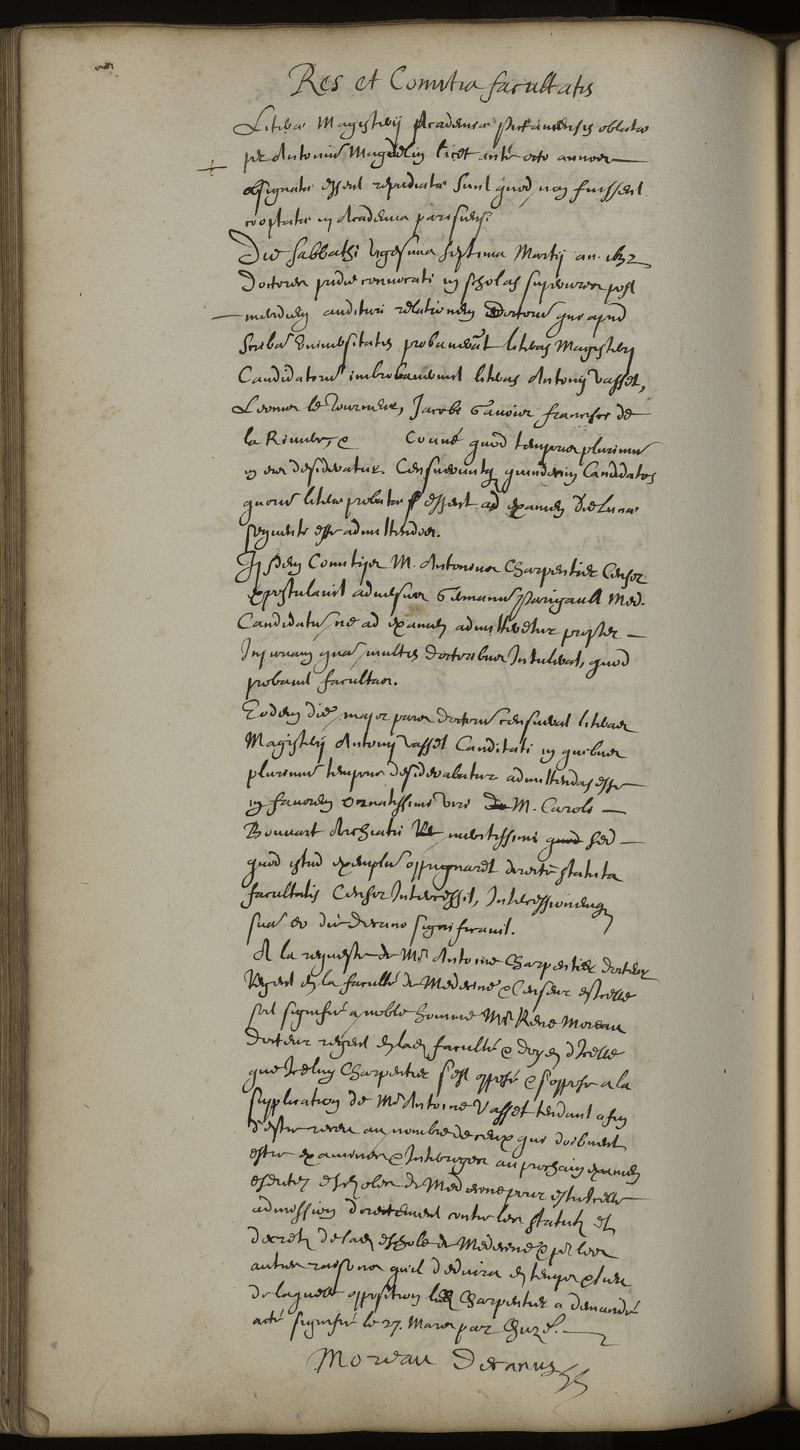 Res et Comitia facultatis
Literæ Magisterij Academiæ Pictaviensis oblatæ
per Antoniũ Magdelin licet ante octo annos
assignatæ essent repudiatæ sunt quod non fuissent
cooptatæ in Academia parisiensi
Die sabbathi vigesima septima Martij an. 1632
doctores pridie convocati in scholas superiores post
meridiem audituri relationem doctorũ qui apud
scribã Universitatis probaverãt literas Magisterij
Candidatorũ improbaverunt literas Antonij Vasset,
le Tourneur, Jacobi Gavois francisci de
la Riviere, & Conné quod tempus plurimũ
in eis desideratur. Censuerunt quindecim Candidatos
quorũ literæ probatæ essent ad examen die Lunæ
sequente esse admittendos.
Iisdem Comitijs M. Antonius Charpentier Censor
expostulavit adversus Germanũ Parigault Med.
Candidatũ, ne ad examen admitteretur propter
Injuriam quã multis doctoribus Intulerat, quod
probavit facultas.
Eodem die major pars doctorũ censuerat literas
Magisterij Antonij Vasset Canditati in quibus
plurimũ temporis desiderabatur admittendas esse
in favorem ornatissimi viri M. Caroli
Bouvart Archiatri meritissimi quod sed
quod istud exemplũ oppugnaret directe statuta
facultatis Censor Intercessit, Intercessionemq
suã eo die decano significavit.
A la requeste de Mre Antoine Charpentier docteur
Regent en la faculté de Medecine & Censeur d'Icelle
soit signifié a noble homme Mre René Moreau
docteur regent en lad. faculté & doyen d'Icelle
que Iceluy Charpentier s'est opposé & s'oppose a la
supplication de Mre Antoine Vasset tendant a fin
d'estre receu au nombre de ceux qui doibvent
estre examinez & Interrogez au prochain examen
escholes de Medecine pour estre telle
admission directement contre les statuts et
decrets de lad. eschole de Medecine & pour les
autres raisons quil deduira en temps & lieu
de laquelle opposition led. Charpentier a demandé
acte signifié le 27. Mars par
Moreau Decanus